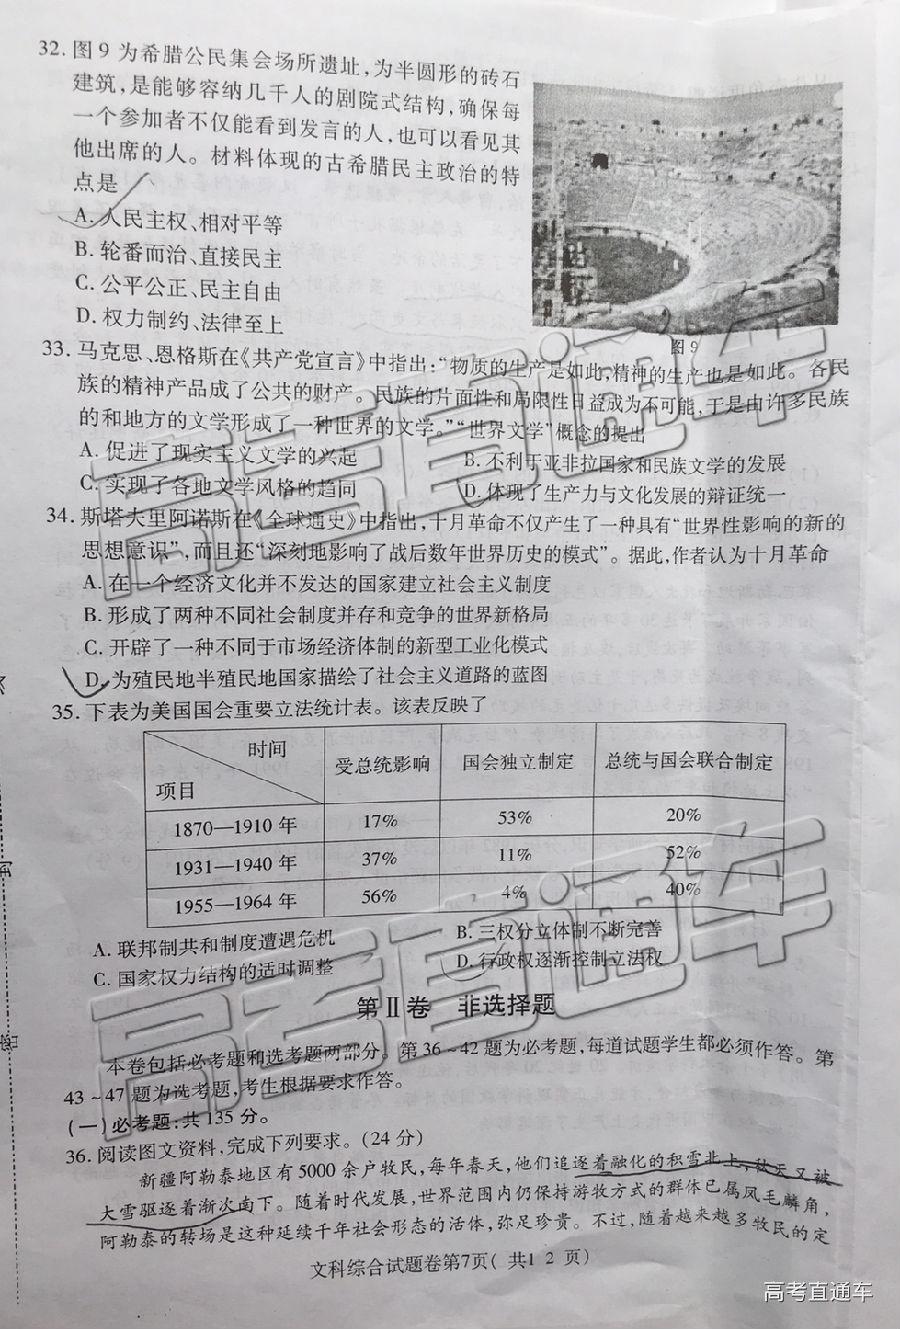 32. 图9为希腊公民集会场所遗址,为半圆形的砖石
建筑,是能够容纳几千人的剧院式结构,确保每
一个参加者不仅能看到发言的人,也可以看见其
他出席的人。材料体现的古希腊民主政治的特
点是
A. 人民主权、相对平等
B. 轮番而治、直接民主
C. 公平公正、民主自由
D. 权力制约、法律至上
图9
33. 马克思、恩格斯在《共产党宣言》中指出:“物质的生产是如此,精神的生产也是如此。各民
族的精神产品成了公共的财产。民族的片面性和局限性日益成为不可能,于是由许多民族
的和地方的文学形成了一种世界的文学。”“世界文学”概念的提出
A. 促进了现实主义文学的兴起
B. 不利于亚非拉国家和民族文学的发展
C. 实现了各地文学风格的趋同
D. 体现了生产力与文化发展的辩证统一
34. 斯塔夫里阿诺斯在《全球通史》中指出,十月革命不仅产生了一种具有“世界性影响的新的
思想意识”,而且还“深刻地影响了战后数年世界历史的模式”。据此,作者认为十月革命
A. 在一个经济文化并不发达的国家建立社会主义制度
B. 形成了两种不同社会制度并存和竞争的世界新格局
C. 开辟了一种不同于市场经济体制的新型工业化模式
D. 为殖民地半殖民地国家描绘了社会主义道路的蓝图
35. 下表为美国国会重要立法统计表。该表反映了
时间
项目 受总统影响 国会独立制定 总统与国会联合制定
1870—1910年 17% 53% 20%
1931—1940年 37% 11% 52%
1955—1964年 56% 4% 40%
A. 联邦制共和制度遭遇危机
B. 三权分立体制不断完善
C. 国家权力结构的适时调整
D. 行政权逐渐控制立法权
第Ⅱ卷 非选择题
本卷包括必考题和选考题两部分。第36~42题为必考题,每道试题学生都必须作答。第
43~47题为选考题,考生根据要求作答。
(一)必考题:共135分。
36. 阅读图文资料,完成下列要求。(24分)
新疆阿勒泰地区有5000余户牧民,每年春天,他们追逐着融化的积雪北上,秋天又被
大雪驱逐着渐次南下。随着时代发展,世界范围内仍保持游牧方式的群体已属凤毛麟角,
阿勒泰的转场是这种延续千年社会形态的活体,弥足珍贵。不过,随着越来越多牧民的定
文科综合试题卷第7页(共12页)
高考直通车
高考直通车
高考直通车